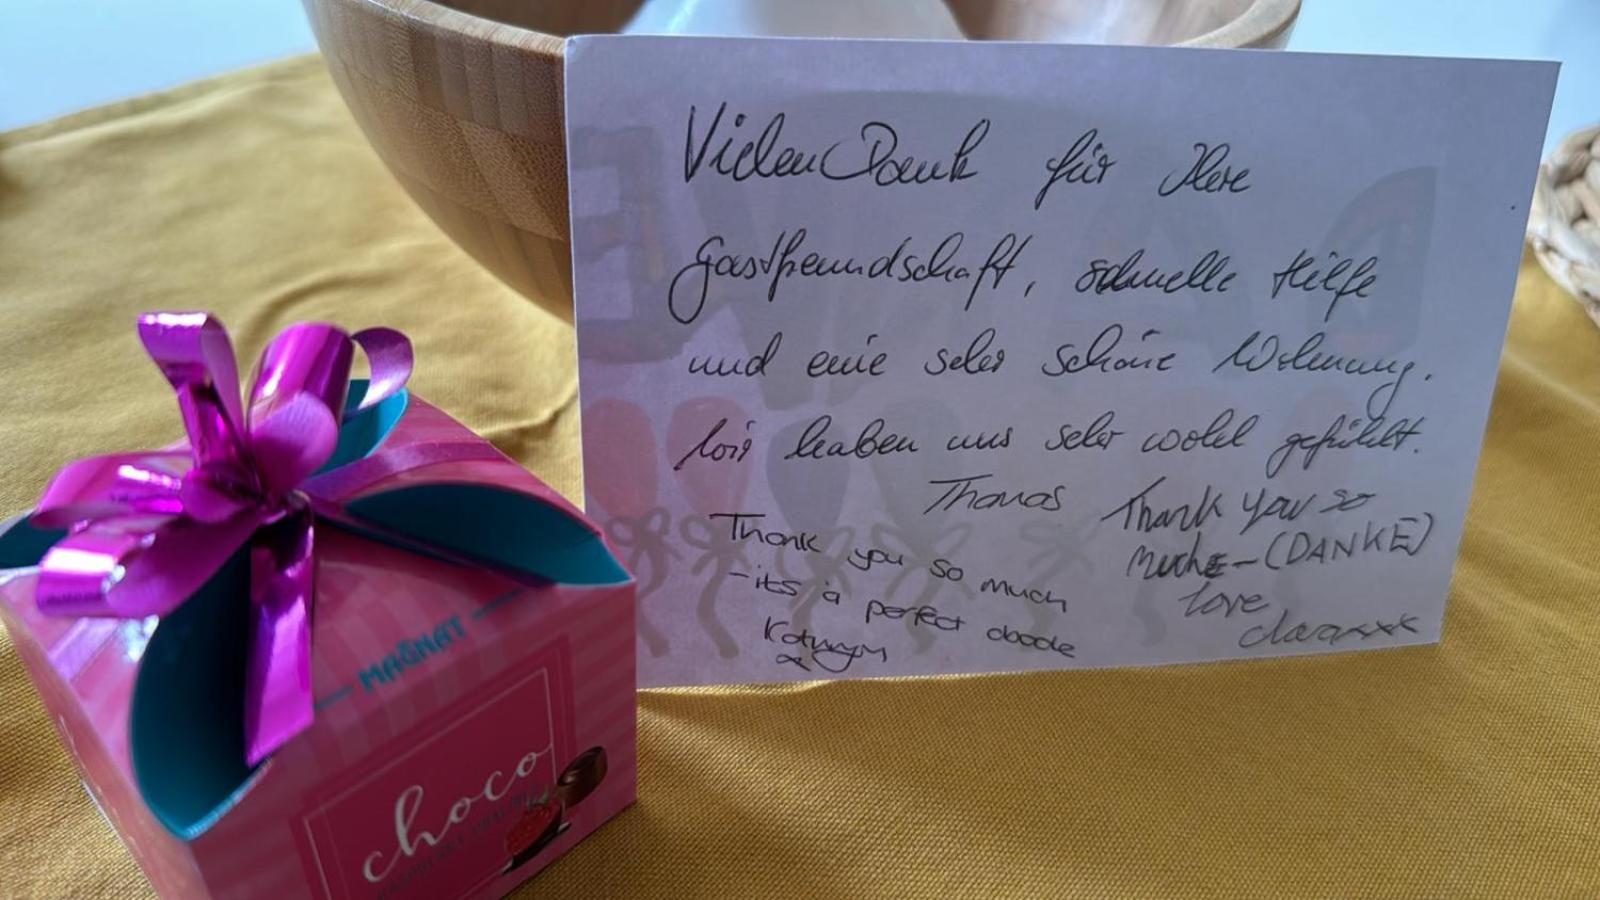 Vielen Dank für Ihre
Gastfreundschaft, schnelle Hilfe
und eine sehr schöne Wohnung.
Wir haben uns sehr wohl gefühlt.
Thomas
Thank you so much
- its a perfect aboode
Kathryn
x
Thank you so
much - (DANKE)
love
claraxxx
MAGNAT
choco
RASPBERRY PRALINE